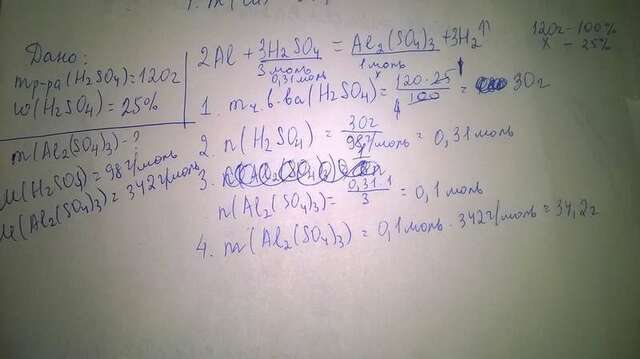 Дано:
mр-ра(H₂SO₄)=120г
ω(H₂SO₄)=25%
m(Al₂(SO₄)₃)-?
M(H₂SO₄)=98г/моль
M(Al₂(SO₄)₃)=342г/моль
2Al + 3H₂SO₄ = Al₂(SO₄)₃ + 3H₂↑
3 моль 1 моль
0,31 моль x
120г-100%
x - 25%
1. mч.в-ва(H₂SO₄)= 120·25/100 = 30г
2. n(H₂SO₄) = 30г/98г/моль = 0,31 моль
3.
n(Al₂(SO₄)₃)= 0,31·1/3 = 0,1 моль
4. m(Al₂(SO₄)₃) = 0,1 моль · 342г/моль = 34,2г